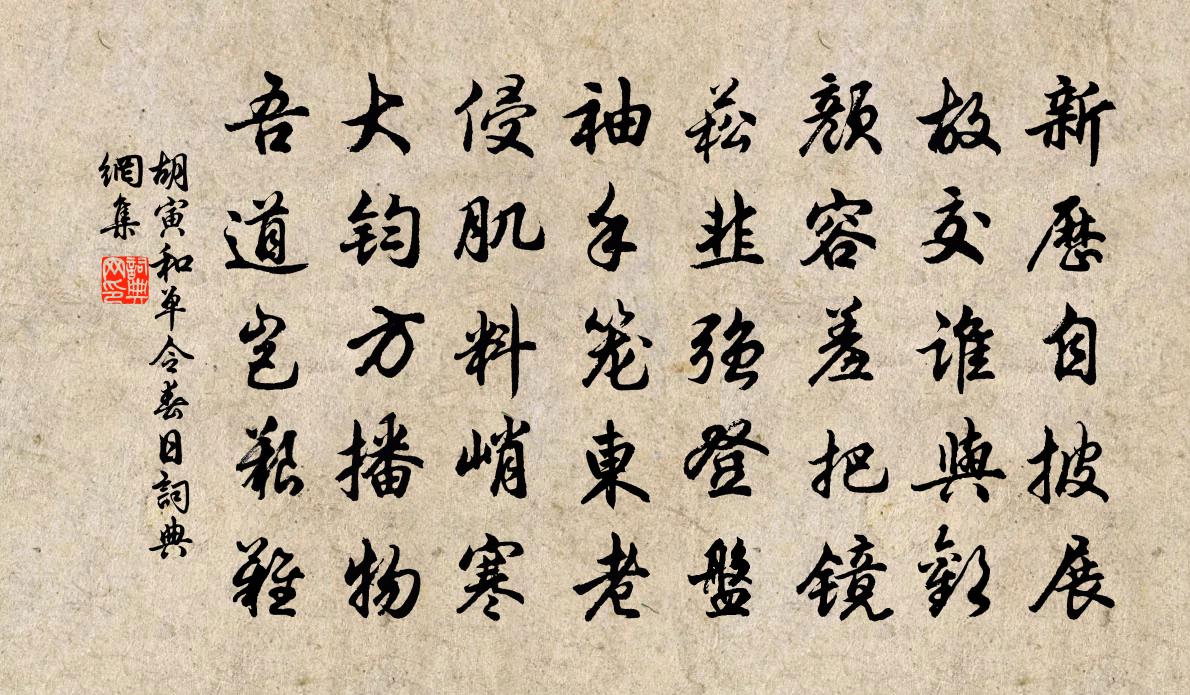 新歷自披展
故交誰與歡
顏容羞把镜
菘韭强登盤
袖手笼東老
侵肌料峭寒
大钧方播物
吾道岂艱難
胡寅和单令春日詞典
網集
詞典
网印